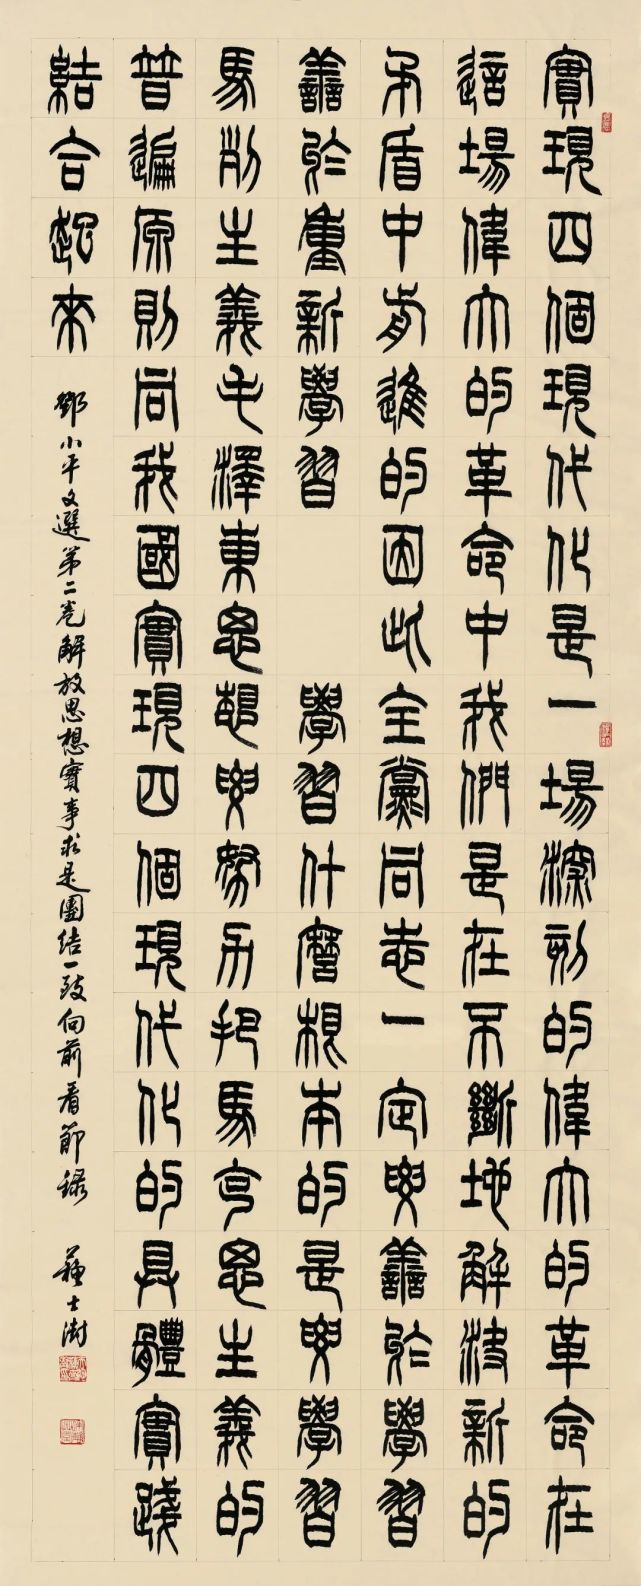 實現四個現代化是一場深刻的偉大的革命在
這場偉大的革命中我們是在不斷地解決新的
矛盾中前進的因此全黨同志一定要善於學習
善於重新學習 學習什麼根本的是要學習
馬列主義毛澤東思想要努力把馬克思主義的
普遍原則同我國實現四個現代化的具體實踐
結合起來
鄧小平文選第二卷解放思想實事求是團結一致向前看節錄 蘇士澍